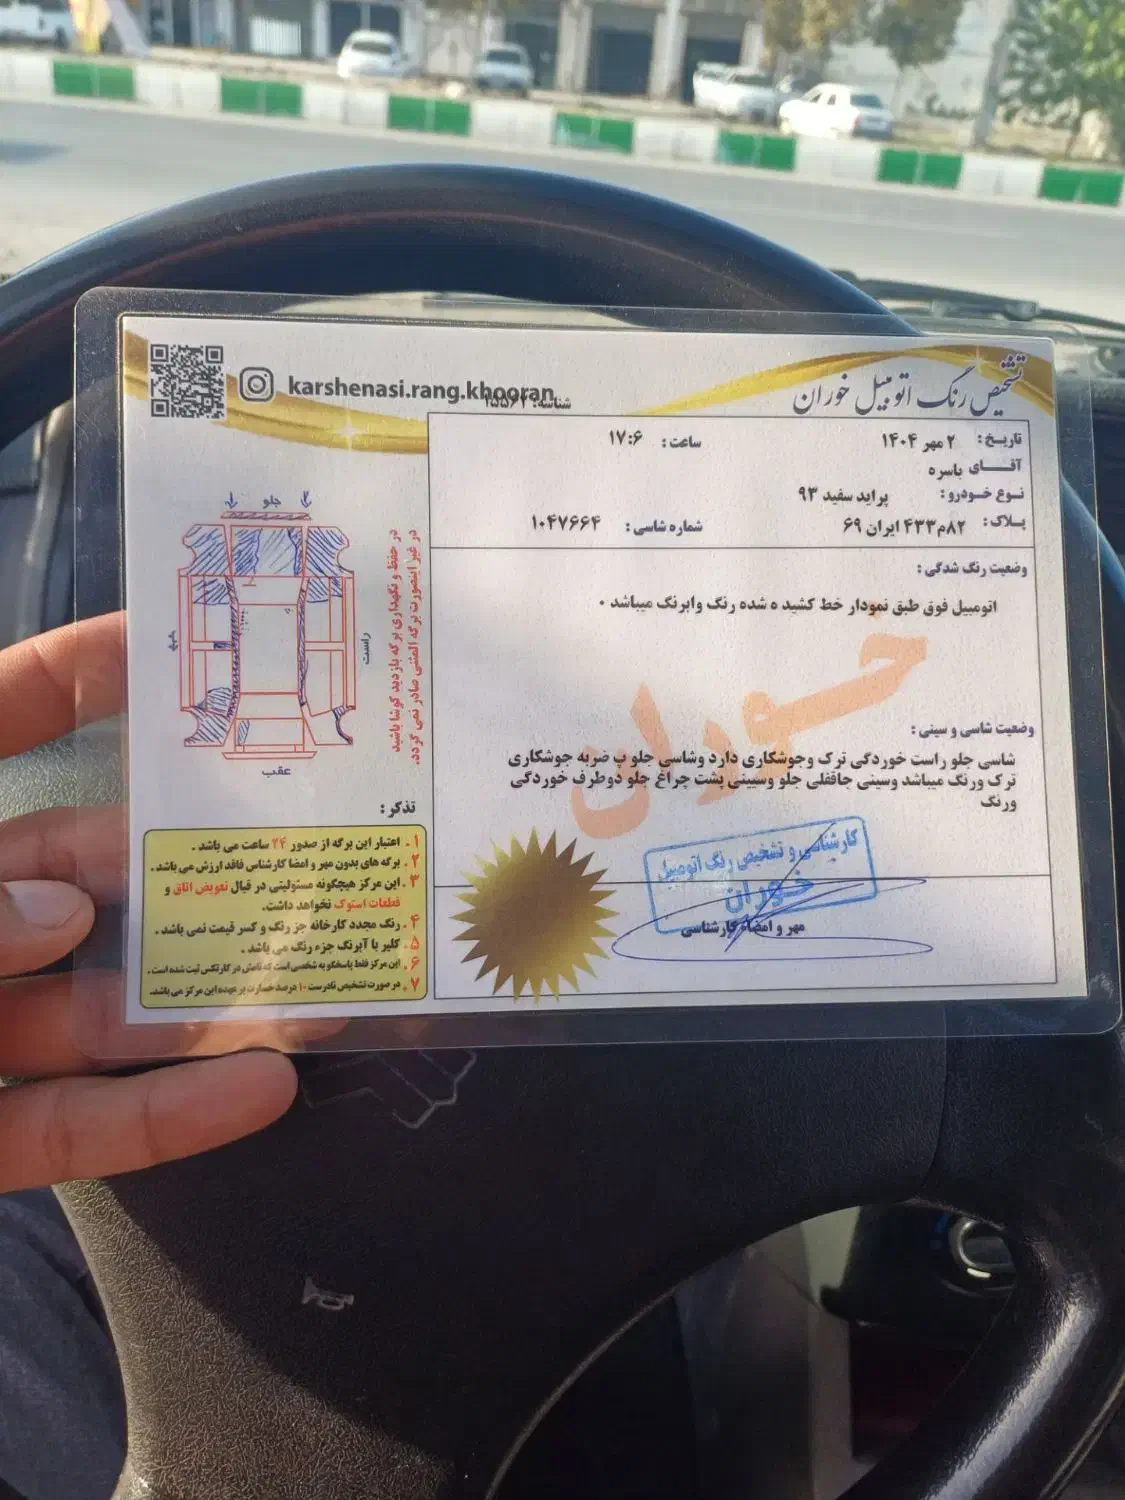 تشخیص رنگ اتومبیل خوران
karshenasi.rang.khooran
شناسه: ۱۵۵۶۲
تاریخ: ۲ مهر ۱۴۰۴
ساعت: ۱۷:۶
آقای باسره
نوع خودرو: پراید سفید ۹۳
پلاک: ۸۲م۴۳۳ ایران ۶۹
شماره شاسی: ۱۰۴۷۶۶۴
وضعیت رنگ شدگی:
اتومبیل فوق طبق نمودار خط کشید ه شده رنگ وابرنگ میباشد ۰
خوران
وضعیت شاسی و سینی:
شاسی جلو راست خوردگی ترک وجوشکاری دارد وشاسی جلو پ ضربه جوشکاری
ترک ورنگ میباشد وسینی جاقفلی جلو وسیینی پشت چراغ جلو دوطرف خوردگی
ورنگ
کارشناسی و تشخیص رنگ اتومبیل
خوران
مهر و امضاء کارشناسی
جلو
راست
عقب
در حفظ و نگهداری برگه بازدید کوشا باشید
در غیر اینصورت برگه المثنی صادر نمی گردد.
تذکر:
۱. اعتبار این برگه از صدور ۲۴ ساعت می باشد.
۲. برگه های بدون مهر و امضا کارشناس فاقد ارزش می باشد.
۳. این مرکز هیچگونه مسئولیتی در قبال تعویض اتاق و
قطعات استوک نخواهد داشت.
۴. رنگ مجدد کارخانه جز رنگ و کسر قیمت نمی باشد.
۵. کلیر یا آبرنگ جزء رنگ می باشد.
۶. این مرکز فقط پاسخگو به شخصی است که نامش در کارتکس ثبت شده است.
۷. در صورت تشخیص نادرست ۱۰ درصد خسارت بر عهده این مرکز می باشد.